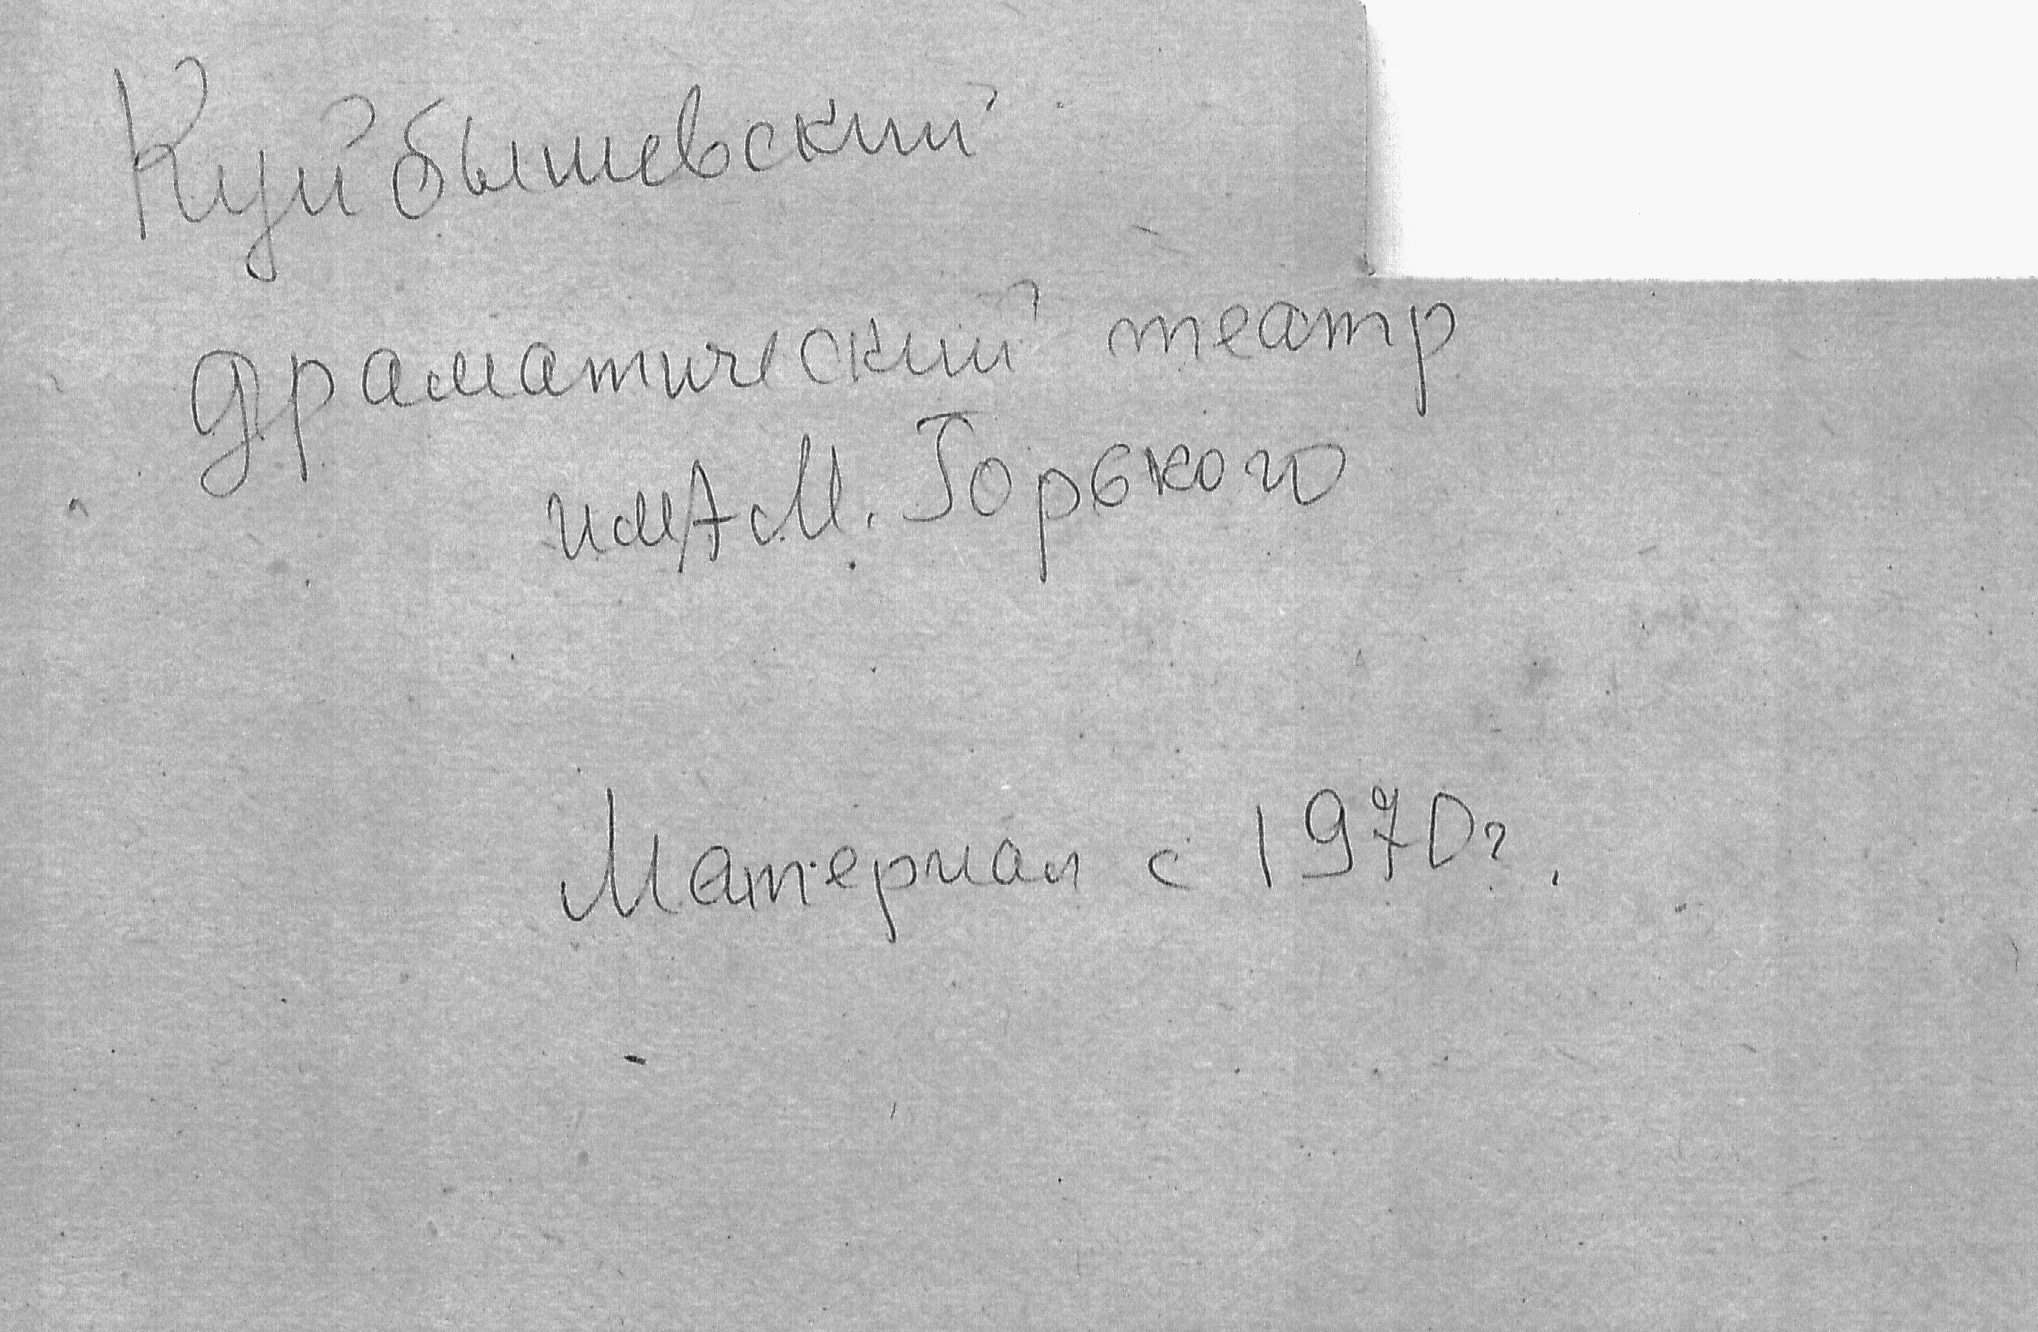 Куйбышевский
драматический театр
им А М. Горького
Материал с 1970г.